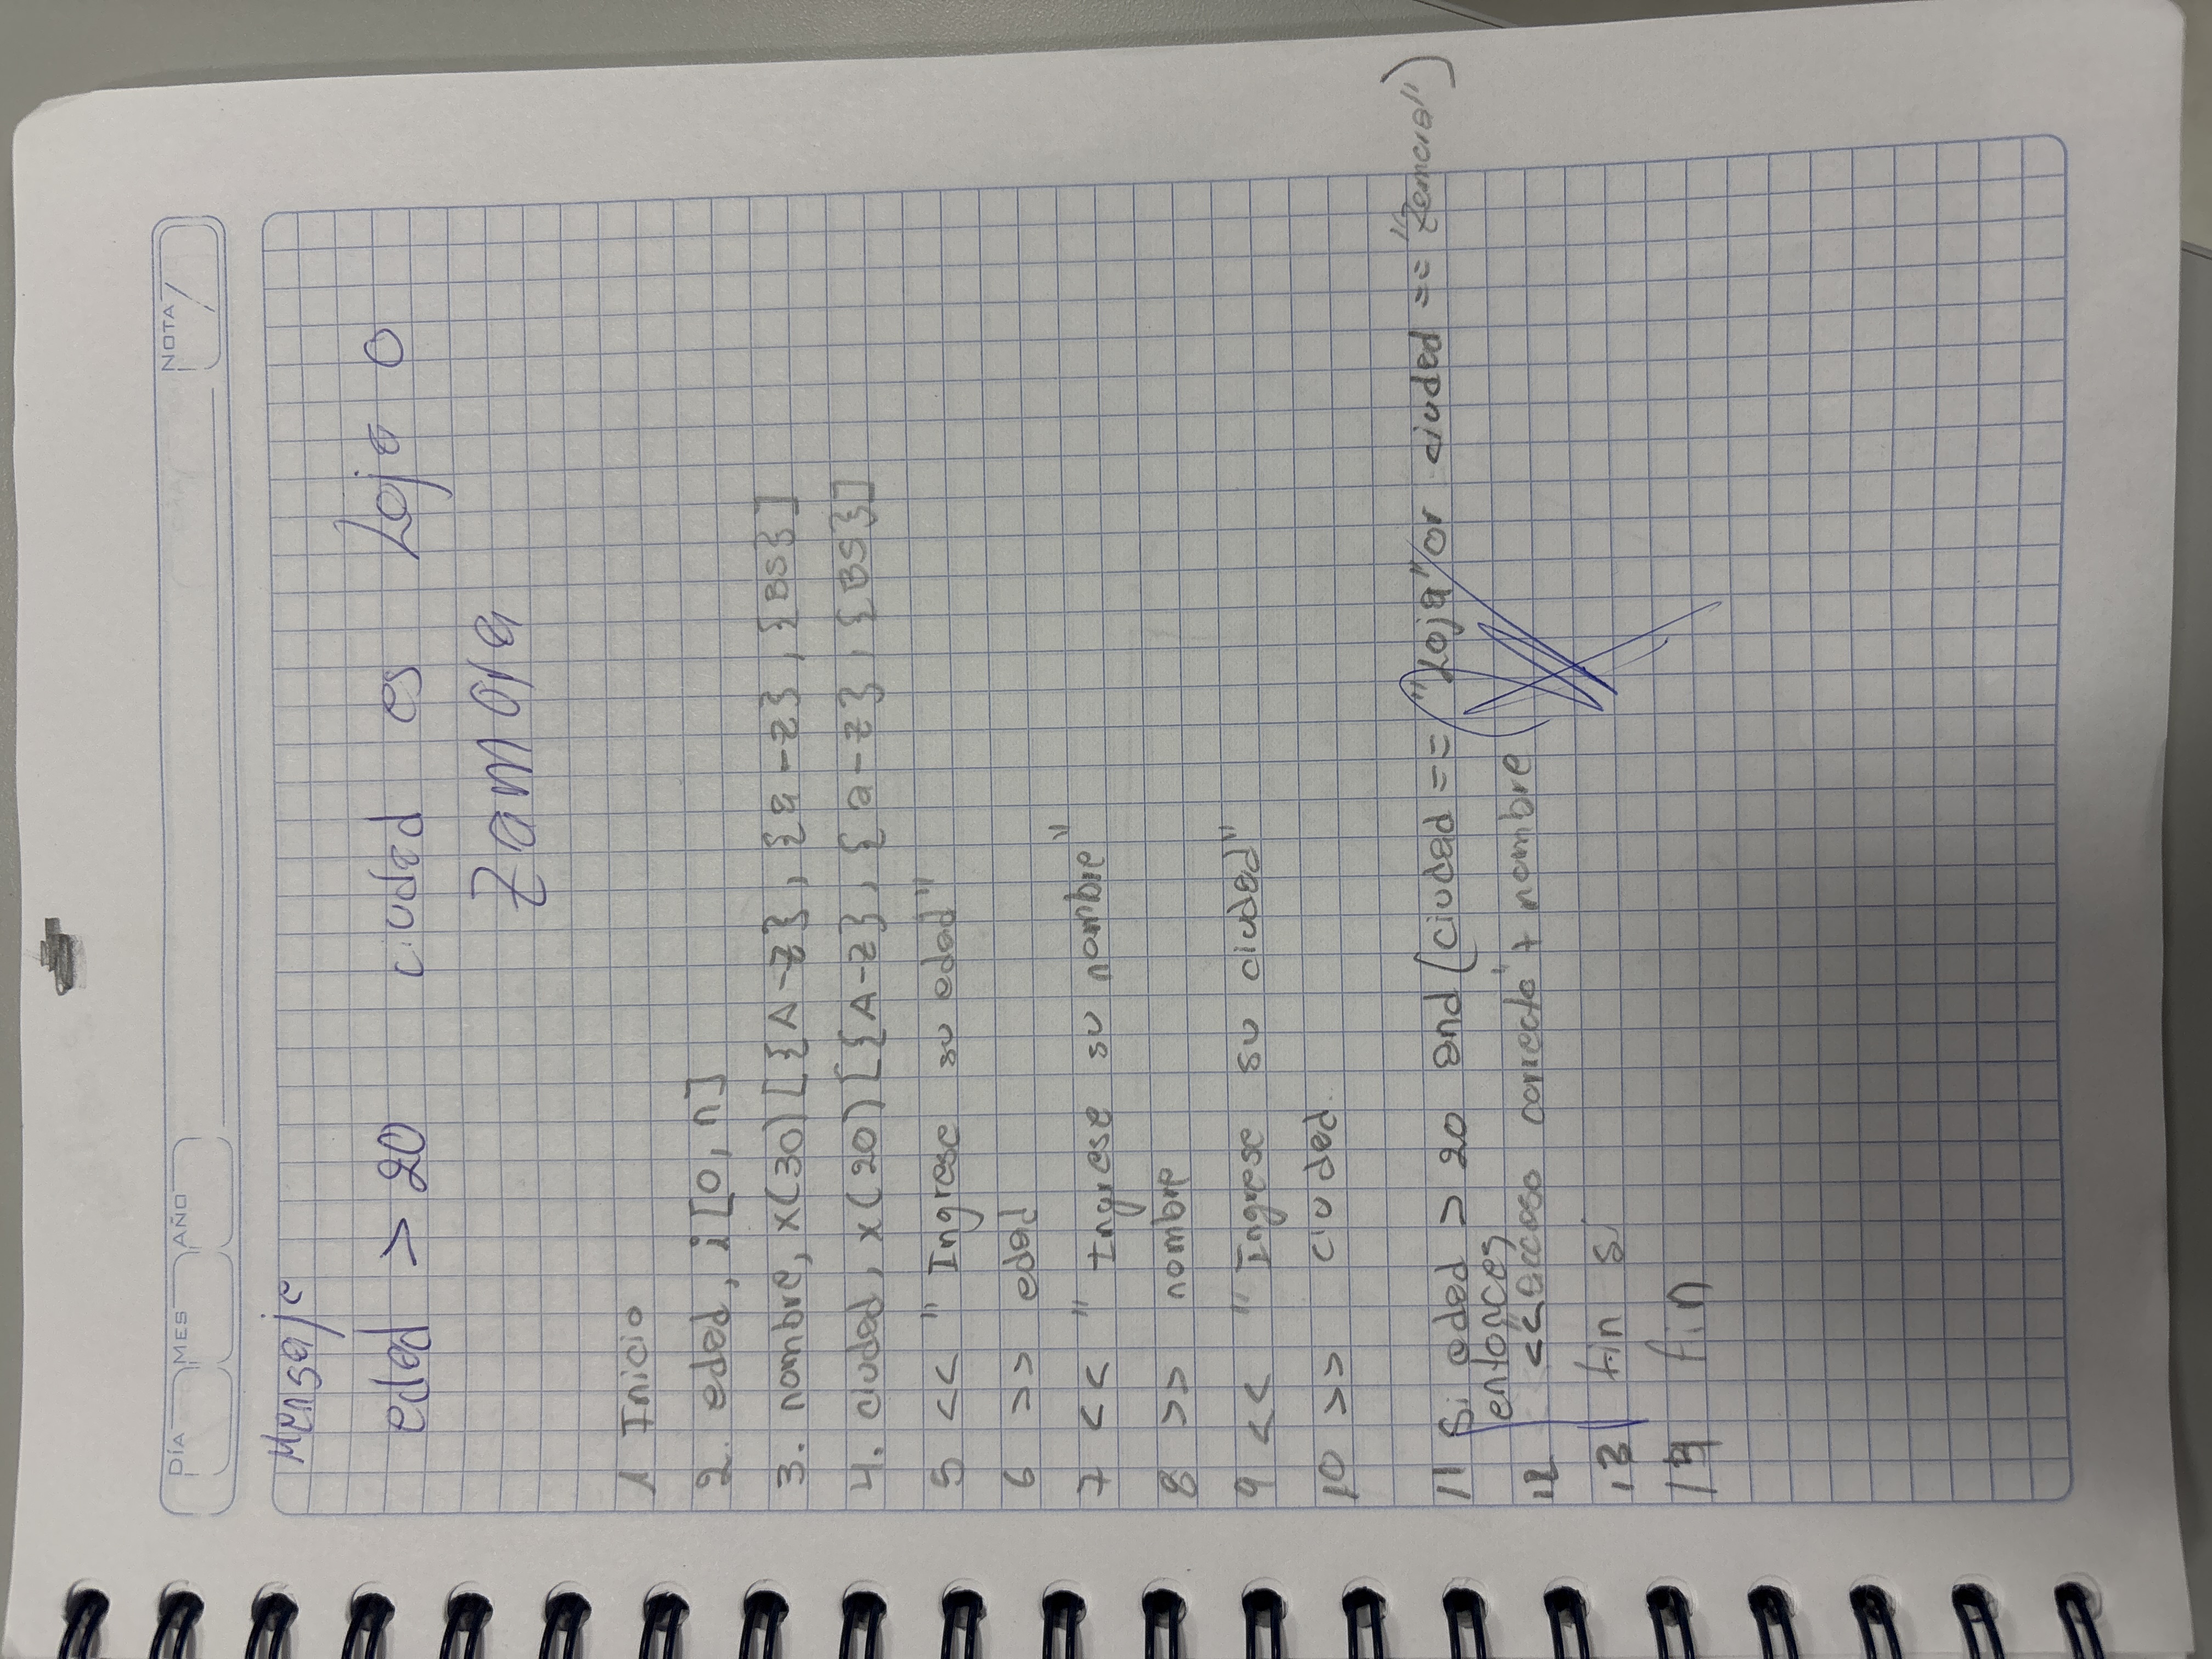 DÍA MES AÑO NOTA
Mensaje
edad > 20 ciudad es Loja o
Zamora
1 Inicio
2. edad, i [0, n]
3. nombre, x(30) [{A-z}, {a-z}, {BS}]
4. ciudad, x(20) [{A-z}, {a-z}, {BS}]
5 << "Ingrese su edad"
6 >> edad
7 << "Ingrese su nombre"
8 >> nombre
9 << "Ingrese su ciudad"
10 >> ciudad
11 Si edad > 20 and (ciudad == "Loja" or ciudad == "Zamora")
entonces
12 << "acceso correcto" + nombre
13 fin si
14 fin